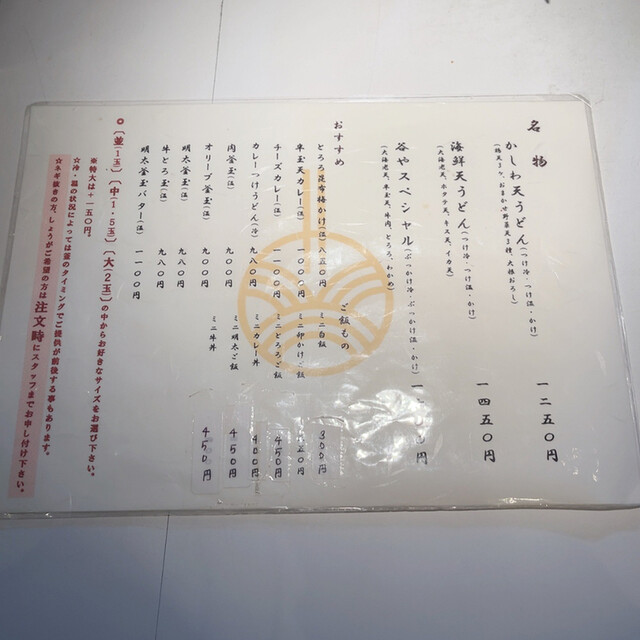 名物
かしわ天うどん(つけ冷・つけ温・かけ) 一二五〇円
海鮮天うどん(つけ冷・つけ温・かけ) 一四五〇円
(大海老天、ホタテ天、キス天、イカ天)
谷やスペシャル(ぶっかけ冷・ぶっかけ温・かけ)
(大海老天、半玉天、牛肉、とろろ、わかめ)
おすすめ
とろろ昆布梅かけ(温) 八五〇円
半玉天カレー(温) 一〇〇〇円
チーズカレー(温) 一一〇〇円
カレーつけうどん(冷) 九八〇円
肉釜玉(温) 九〇〇円
オリーブ釜玉(温) 九〇〇円
明太釜玉(温) 九八〇円
牛とろ玉(温) 九八〇円
明太釜玉バター(温) 一一〇〇円
ご飯もの
ミニ白飯 300円
ミニ卵かけご飯
ミニとろろご飯 450円
ミニカレー丼 400円
ミニ明太ご飯 450円
ミニ牛丼 450円
◎〔並(1玉)〕〔中(1・5玉)〕〔大(2玉)〕の中からお好きなサイズをお選び下さい。
※特大は+一五〇円。
☆冷・温の状況によっては釜のタイミングでご提供が前後する事もあります。
☆ネギ抜きの方、しょうがご希望の方は注文時にスタッフまでお申し付け下さい。